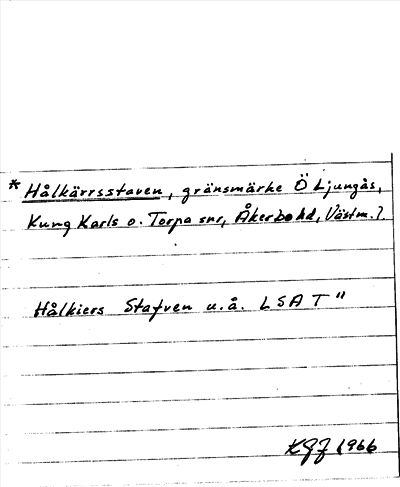 * Hålkärrsstaven, gränsmärke Ö Ljungås,
Kung Karls o. Torpa snr, Åkerbo hd, Västm. l.
Hålkiers Stafven u.å. LSA T"
KGJ 1966